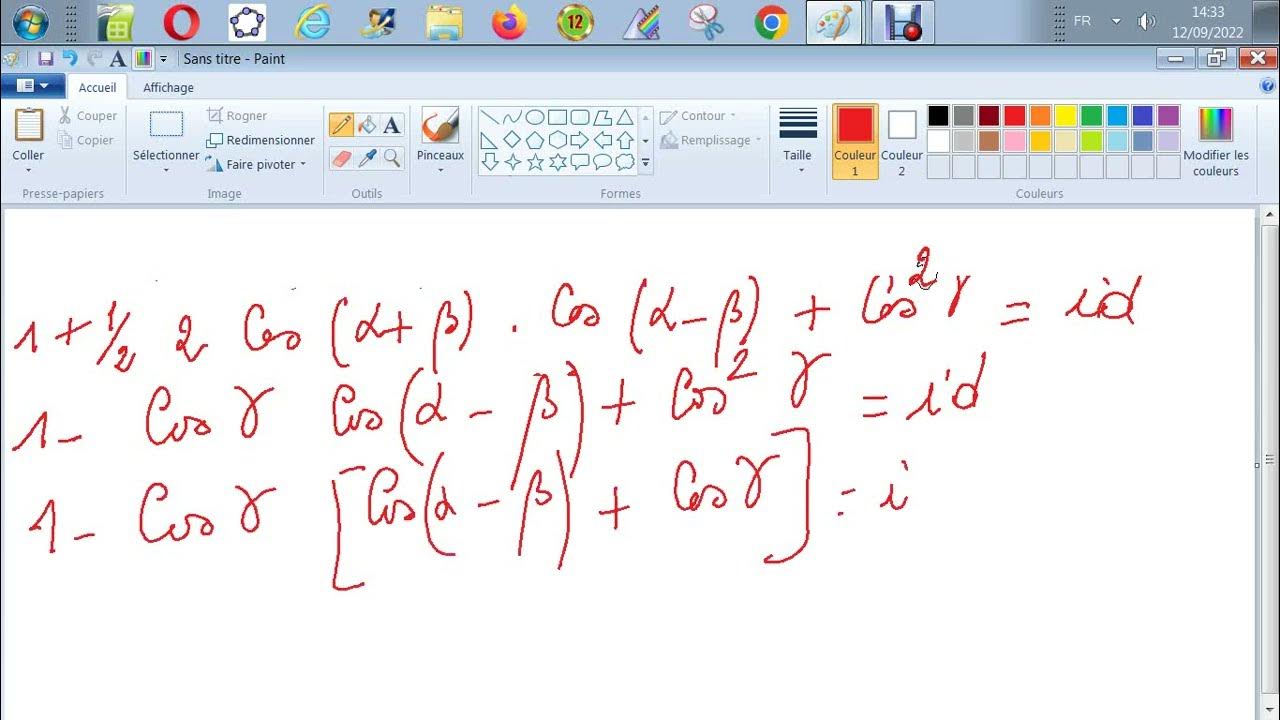 FR
14:33
12/09/2022
12
Sans titre - Paint
Accueil Affichage
Coller
Couper
Copier
Presse-papiers
Sélectionner
Rogner
Redimensionner
Faire pivoter
Image
A
Outils
Pinceaux
Contour
Remplissage
Formes
Taille
Couleur 1
Couleur 2
Modifier les couleurs
Couleurs
1 + 1/2 2 Cos (α+β) . Cos (α-β) + Cos² γ = id
1 - Cos γ Cos (α - β) + Cos² γ = id
1 - Cos γ [Cos(α - β) + Cos γ] = i